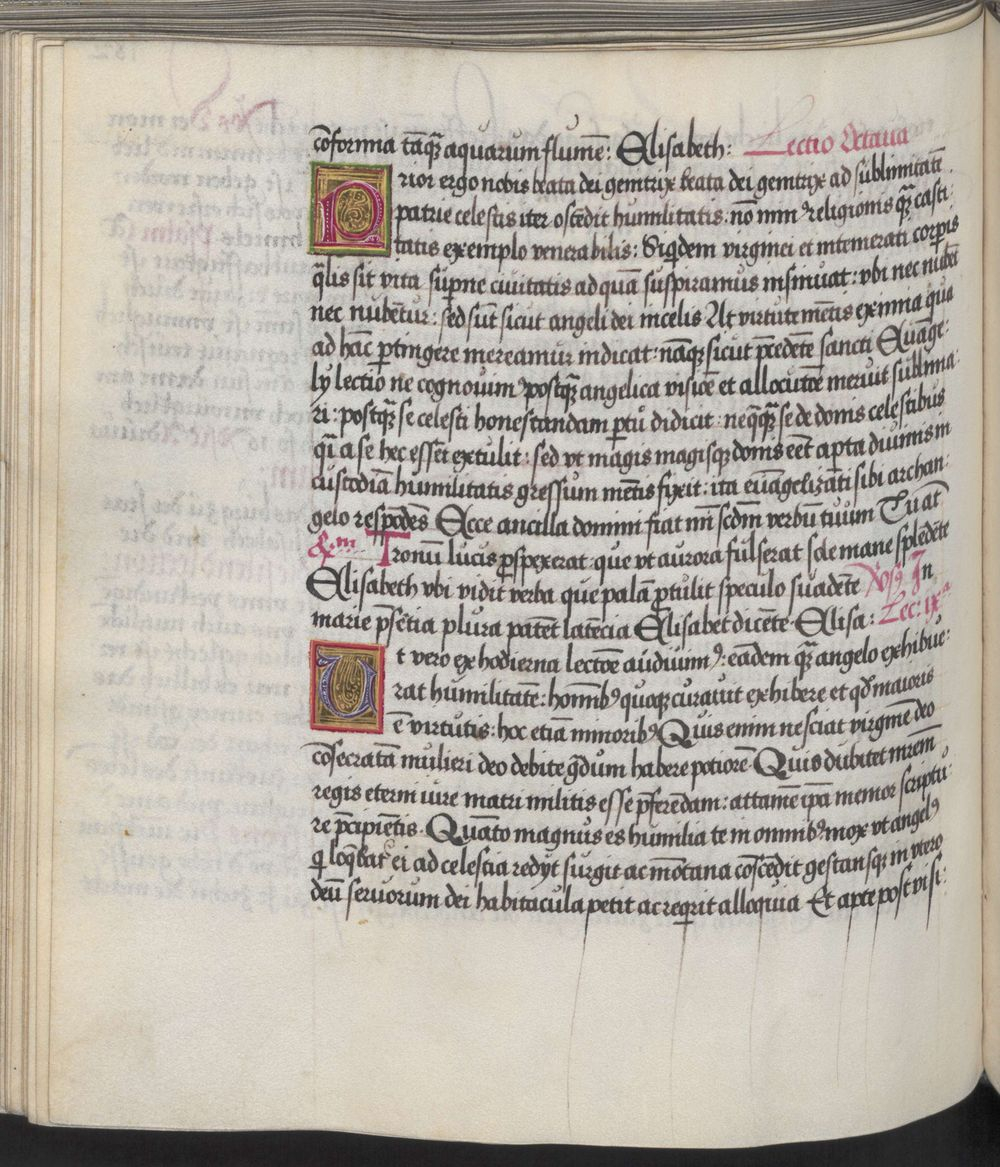 cōforma tāq̄ aquarum flumē: Elisabeth: Lectio Octaua
Prior ergo nobis beata dei genitrix beata dei genitrix ad sublimitatē
patrie celestis iter ostēdit humilitatis: nō min⁹ religionis q̄ casti:
tatis exemplo venerabilis: Siq̄dem virginei et intemerati corpꝫis
q̄lis sit vita supne ciuitatis ad quā suspiramus insinuat: vbi nec nubēt
nec nubētur: sed sūt sicut angeli dei in celis At virtute mētis eximia qua
ad hāc ꝑtingere mereamur indicat: nāq̄ sicut p̄cedēte sancti Euāge:
ly lectione cognouim⁹ postq̄ angelica visiōe et allocutōe meruit sublima:
ri: postq̄ se celesti honestandam partu didicit: neq̄q̄ se de donis celestibus
q̄i a se hec essēt extulit: sed vt magis magisq̄ donis eēt apta diuinis in
custodiā humilitatis gressum mētis fixit: ita euāgelizāti sibi archan:
gelo respōdēs Ecce ancilla domini fiat mī scdm verbū tuum Tu aūt
Tronū lucis ꝓspexerat que vt aurora fulserat sole mane splēdēte
Elisabeth vbi vidit verba que palā ꝓtulit speculo suadēte Vs⁹ In
marie p̄sētia plura patēt latēcia Elisabet dicēte Elisa: Lec: ixᵃ
Ut vero ex hodierna lectōe audiuim⁹: eādem q̄ angelo exhibue:
rat humilitatē: hominib⁹ quoqꝫ curauit exhibere et qd̄ maioris
ē virtutis: hoc etiā minorib⁹ Quis enim nesciat virginē deo
cōsecratā mulieri deo debite gͣdum habere potiorē Quis dubitet mr̄em
regis eterni iure matri militis esse p̄ferēdam: attamē ipa memor scriptu:
re p̄cipiētis Quāto magnus es humilia te in omnib⁹ mox vt angel⁹
q̄ loq̄bat᷑ ei ad celestia redyt surgit ac mōtana cōscēdit gestansq̄ in vtero
deū seruorum dei habitacula petit ac reqͥrit alloquia Et apte post visi: